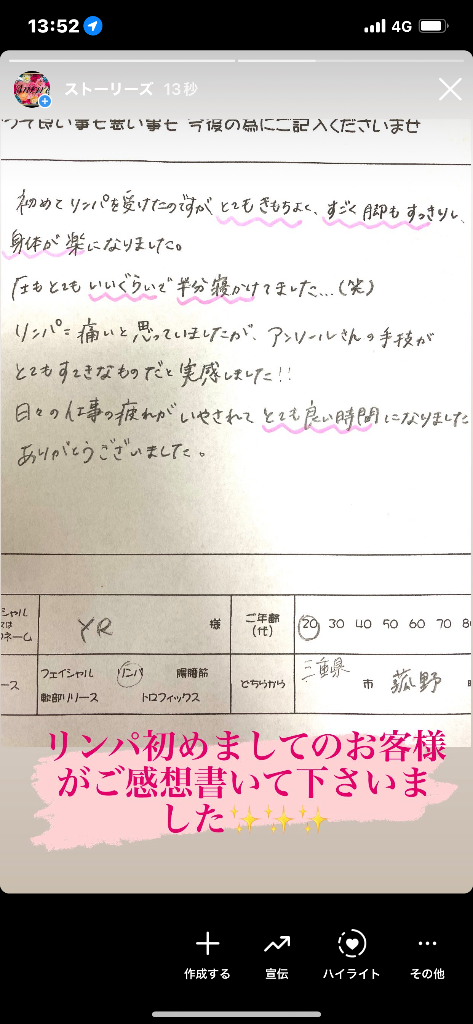 13:52
4G
ストーリーズ 13秒
って良い事も悪い事も 今後の為にご記入くださいませ
初めてリンパを受けたのですが とてもきもちよく、すごく脚もすっきりし、
身体が楽になりました。
圧もとてもいいぐらいで半分寝かけてました…(笑)
リンパ=痛いと思っていましたが、アンソールさんの手技が
とてもすてきなものだと実感しました!!
日々の仕事の疲れがいやされて とても良い時間になりました
ありがとうございました。
シャル
ては
ネーム
YR 様
ご年齢
(代)
20 30 40 50 60 70 8
ース
フェイシャル リンパ 腸腰筋
軟部リリース トロフィックス
どちらから
三重県
市 菰野
リンパ初めましてのお客様
がご感想書いて下さいま
した✨✨✨
作成する 宣伝 ハイライト その他